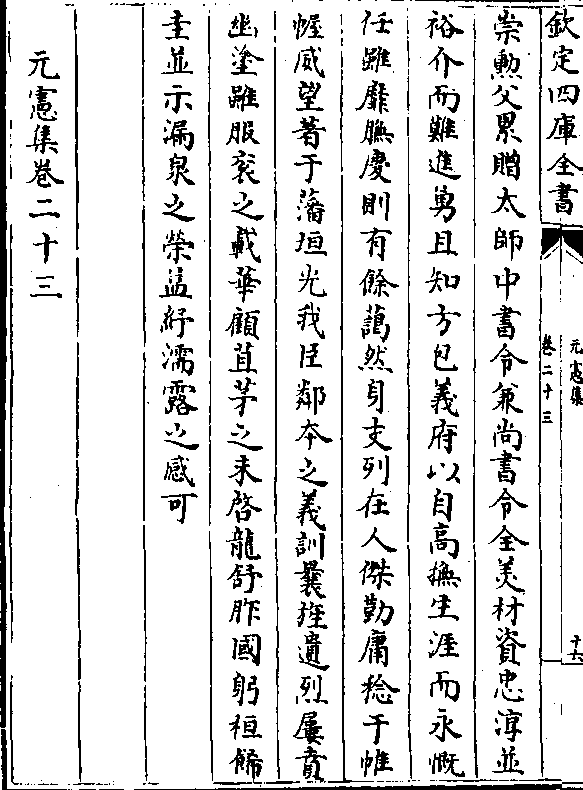 欽定四庫全書
元憲集
卷二十三
十六
崇勲父累贈太師中書令兼尚書令全美材資忠淳並
裕介而難進勇且知方包義府以自高撫生涯而永慨
任雖靡膴慶則有餘藹然身支列在人傑勤庸稔于帷
幄威望著于藩垣光我臣鄰本之義訓曩旌遺烈屢賁
幽塗雖服衮之載華顧苴茅之未啓龍舒胙國躬桓歸
圭並示漏泉之榮益紓濡露之感可
元憲集卷二十三